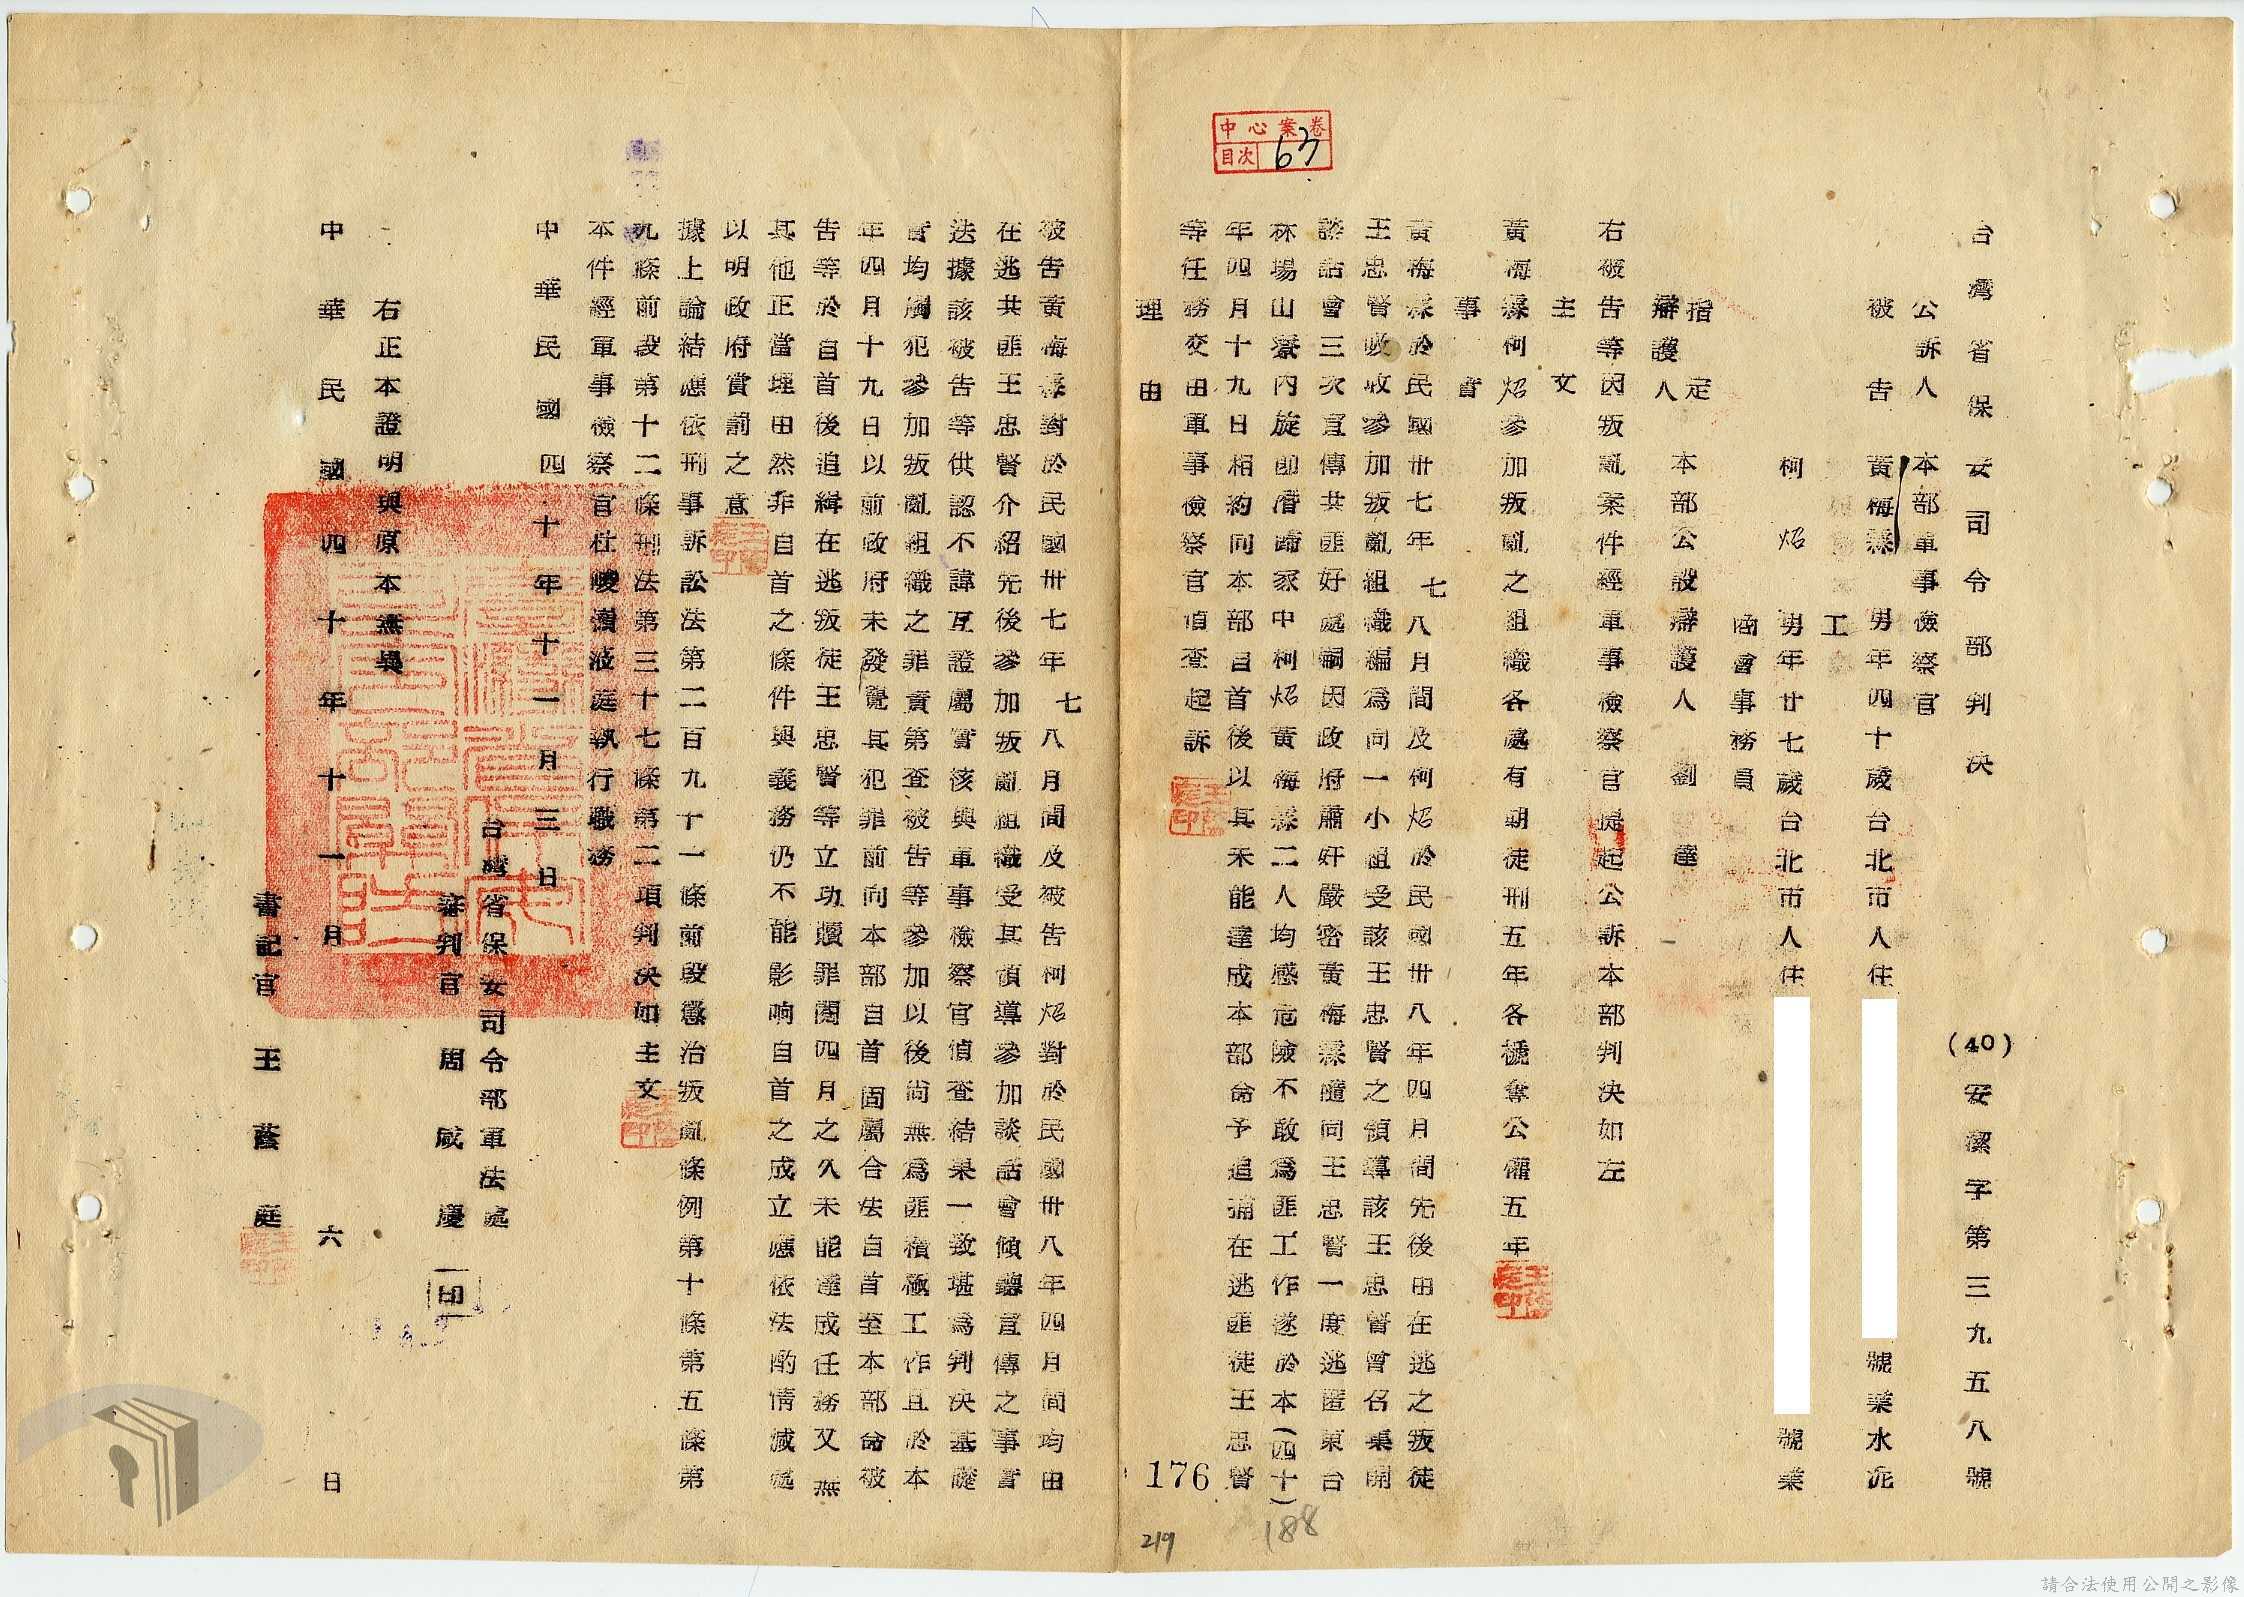 台灣省保安司令部判決
(40)安潔字第三九五八號
公訴人 本部軍事檢察官
被告 黃梅霖 男年四十歲台北市人住
號業水泥
工
柯炤 男年廿七歲台北市人住
號業
商會事務員
指定
辯護人 本部公設辯護人 劉達
右被告等因叛亂案件經軍事檢察官提起公訴本部判決如左
主文
黃梅霖柯炤參加叛亂之組織各處有期徒刑五年各褫奪公權五年
事實
黃梅霖於民國卅七年七八月間及柯炤於民國卅八年四月間先後由在逃之叛徒
王忠賢吸收參加叛亂組織編為同一小組受該王忠賢之領導該王忠賢曾召集開
談話會三次宣傳共匪好處嗣因政府肅奸嚴密黃梅霖隨同王忠賢一度逃匿東台
林場山寮內旋即潛歸家中柯炤黃梅霖二人均感危險不敢為匪工作遂於本(四十)
年四月十九日相約向本部自首後以其未能達成本部命予追捕在逃匪徒王忠賢
等任務交由軍事檢察官偵查起訴
理由
被告黃梅霖對於民國卅七年七八月間及被告柯炤對於民國卅八年四月間均由
在逃共匪王忠賢介紹先後參加叛亂組織受其領導參加談話會傾聽宣傳之事實
迭據該被告等供認不諱互證屬實核與軍事檢察官偵查結果一致堪為判決基礎
實均屬犯參加叛亂組織之罪責第查被告等參加以後尚無為匪積極工作且於本
年四月十九日以前政府未發覺其犯罪前向本部自首固屬合法自首至本部命被
告等於自首後追緝在逃叛徒王忠賢等立功贖罪閱四月之久未能達成任務又無
其他正當理由然非自首之條件與義務仍不能影响自首之成立應依法酌情減處
以明政府賞罰之意
據上論結應依刑事訴訟法第二百九十一條前段懲治叛亂條例第十條第五條第
九條前段第十二條刑法第三十七條第二項判決如主文
本件經軍事檢察官杜崚瀕蒞庭執行職務
中華民國四十年十一月三日
台灣省保安司令部軍法處
審判官 周咸慶 印
右正本證明與原本無異
中華民國四十年十一月六日
書記官 王蔭庭
中心案卷
目次 63
176
188
219
請合法使用公開之影像